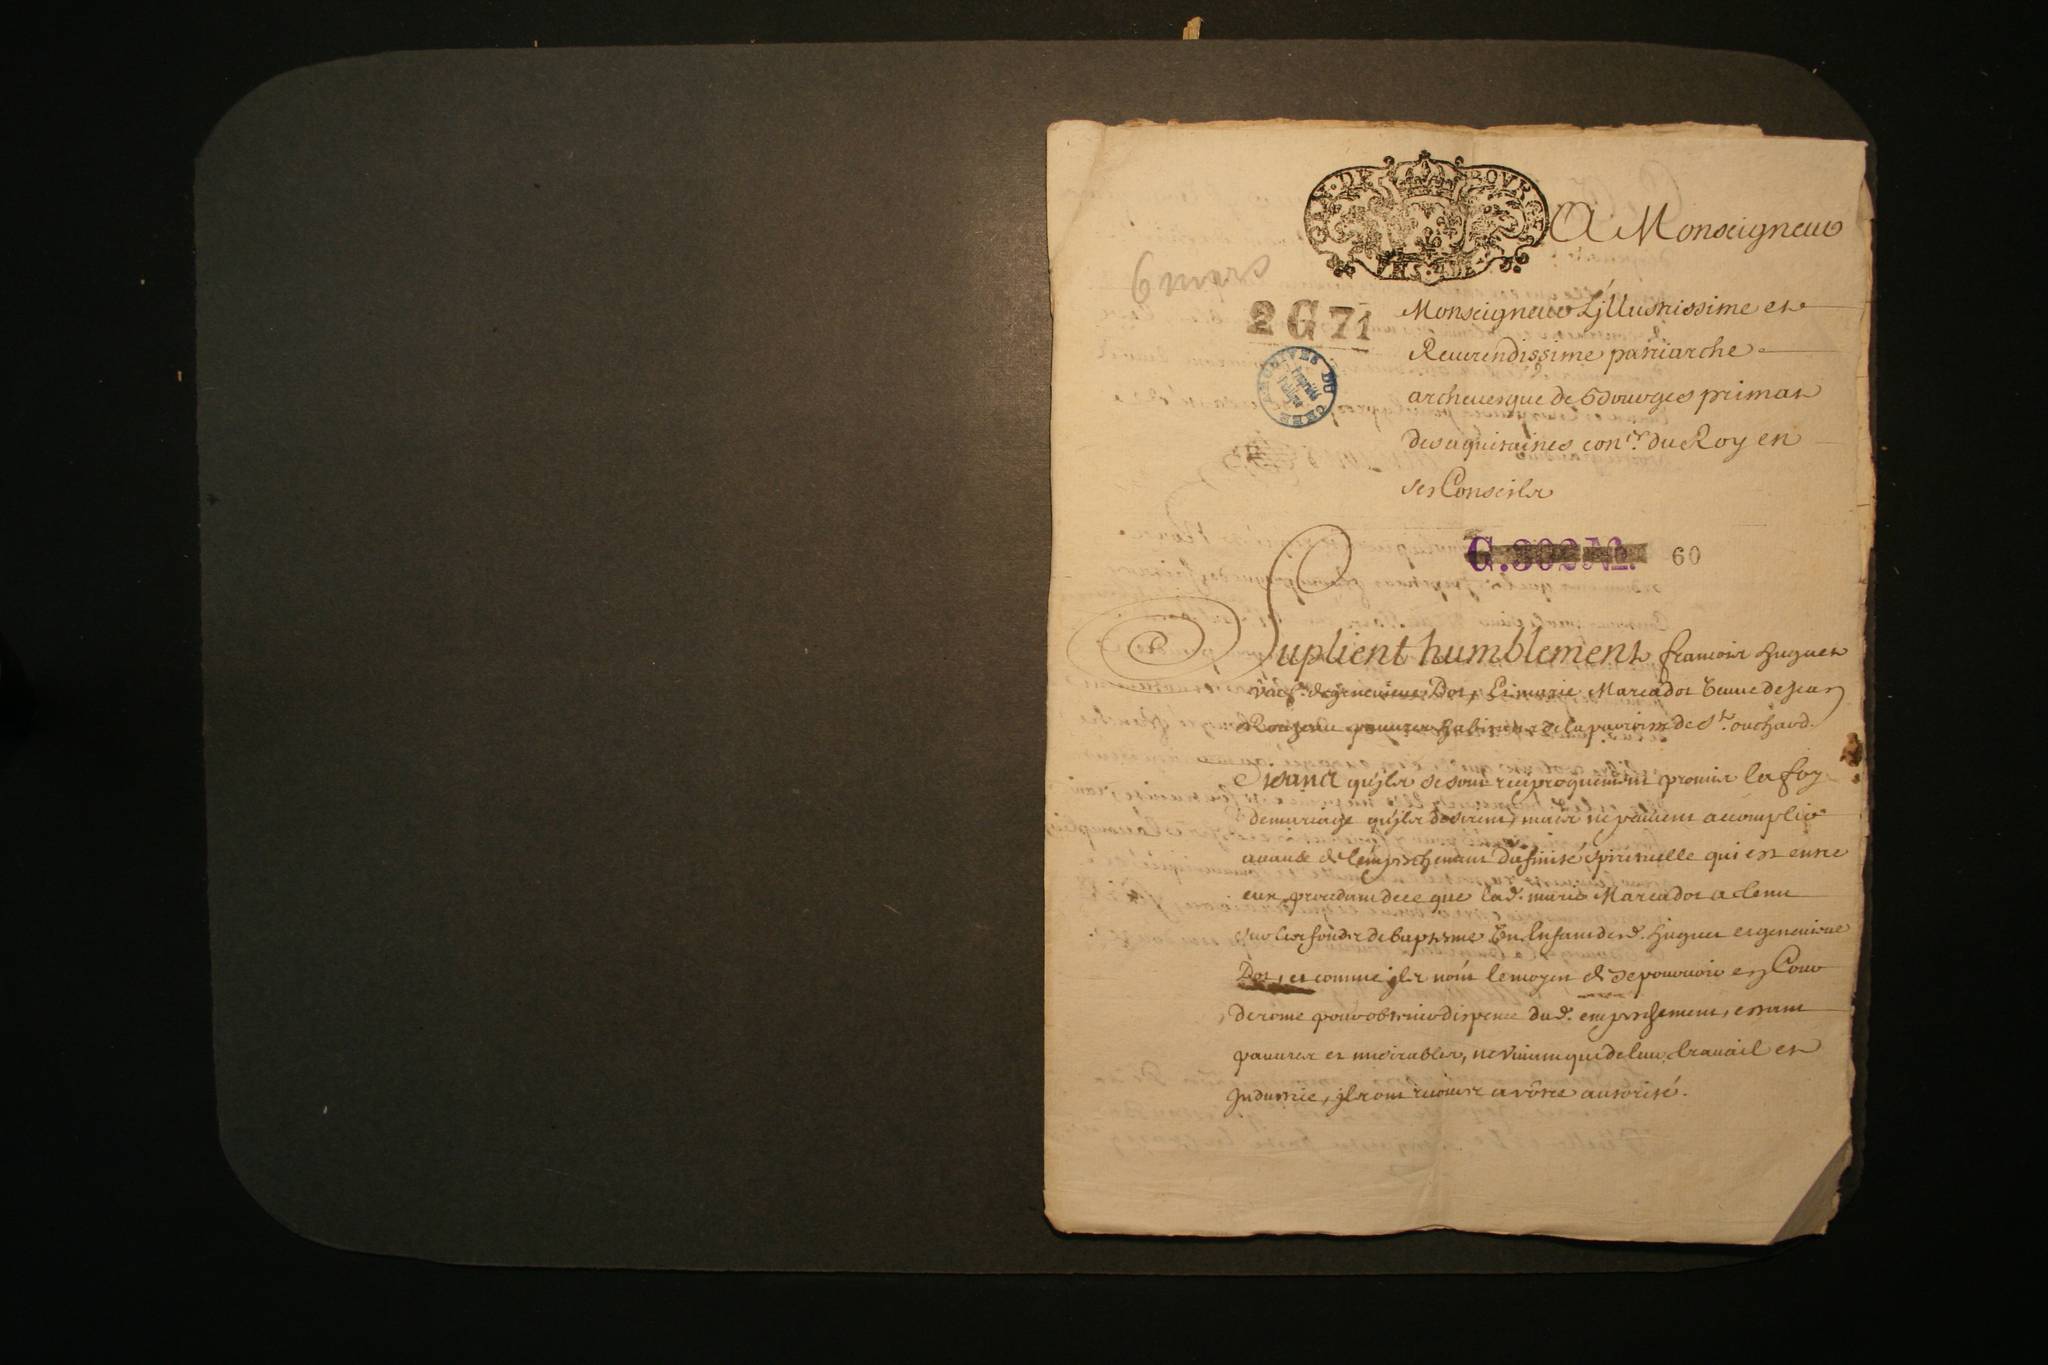 GEN. DE BOURGES
A Monseigneur
6 mars
2 G 71
Monseigneur L'jllustrissime et
Reuerendissime patriarche
ARCHIVES DU CHER
archeuesque de Bourges primat
des aquitaines con.er du Roy en
ses Conseils
G. 302 No. 60
Suplient humblement francois huguet
de geneuieue Dot, Et marie Marcadot veuue de Jean
pauures habitans de la parroisse de St. outhard.
Disant qu'jls se sont reciproquement promis la foy
de mariage qu'jls desirent, mais ne peuuent accomplir
a cause de l'empeschement d'afinité spirituelle qui est entre
eux procedant de ce que lad. marie Marcadot a tenu
sur les fonds de baptesme un Enfant dud. huguet et geneuieue
Dot, et comme jls n'ont le moyen de se pouruoir en Cour
de rome pour obtenir dispence dud. empeschement, estant
pauures et miserables, ne viuant que de leur trauail et
Industrie, jls ont recours a vôtre autorité.